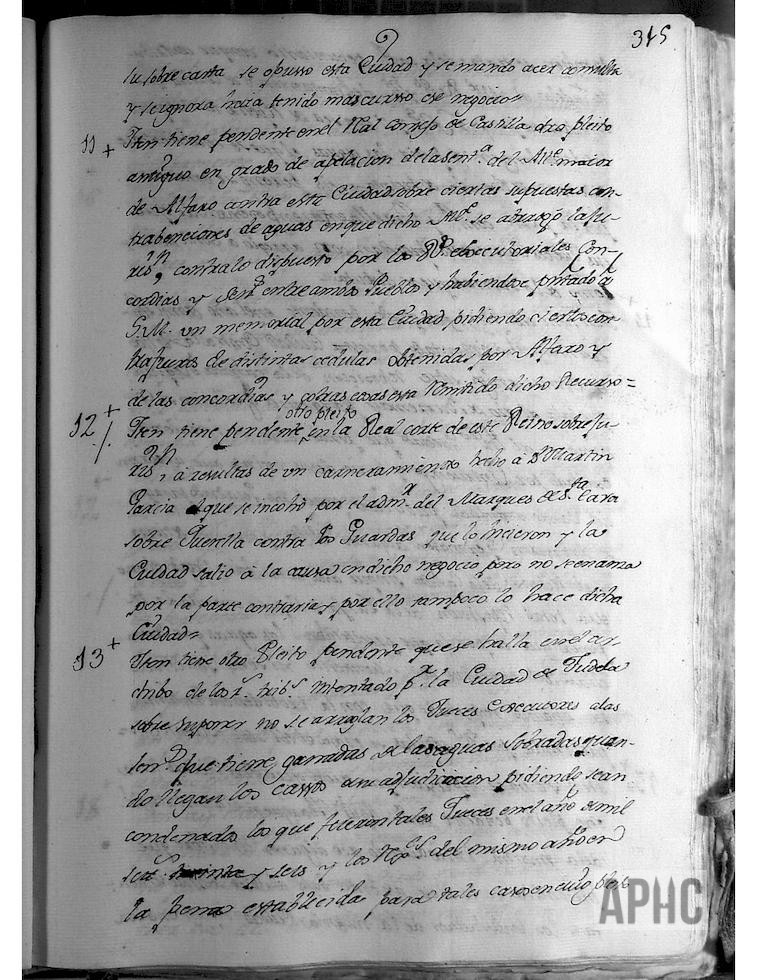 345
su sobre carta se opusso esta Ciudad y se mando acer consulta
y se ignora haia tenido mas curso ese negocio=
11 + Iten tiene pendente en el Rl Consejo de Castilla otro pleito
antiguo en grado de apelacion de la senta. del Alle. maior
de Alfaro contra esta Ciudad sobre ciertas supuestas con-
trabenciones de aguas en que dicho Alle. se atrajo la ju-
risn. contra lo dispuesto por las executoriales Con-
cordias y Sens. entre ambos Pueblos y habiendose
S.M. un memorial por esta Ciudad, pidiendo ciertos con
trafueros de distintas cedulas obtenidas por Alfaro y
de las concordias y otras cosas esta remitido dicho Recurso=
12 + Iten tiene pendente otro pleito en la Real corte de este Reino sobre ju
risn. a resultas de un carneramiento hecho a Dn Martin
Garcia el que se incoho por el admr. del Marques de Sta. Cara
sobre Querella contra los Guardas que lo hicieron y la
Ciudad salio a la causa en dicho negocio pero no se enanta
por la parte contraria y por ello tampoco lo hace dicha
Ciudad=
13 + Iten tiene otro Pleito pendente que se halla en el ar-
chibo de los Rs. tribs. intentado pr. la Ciudad de Tudela
sobre suponer no se arreglan los Jueces Executores a las
sens. que tiene ganadas de las aguas sobradas quan-
do llegan los casos de su adjudicacion pidiendo sean
condenados los que fueron tales Jueces en el año de mil
setes. treinta y seis y los Rexs. del mismo año en
la pena establecida para tales casos en cuio pleito
APHC